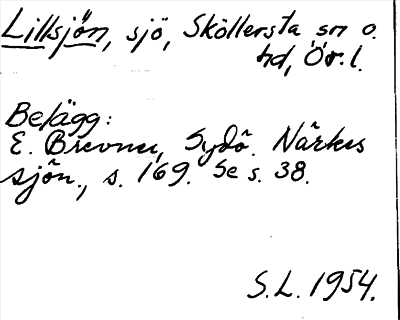 Lillsjön, sjö, Sköllersta sn o.
hd, Ör. l.
Belägg:
E. Brevner, Sydö. Närkes
sjön., s. 169. Se s. 38.
S.L. 1954.